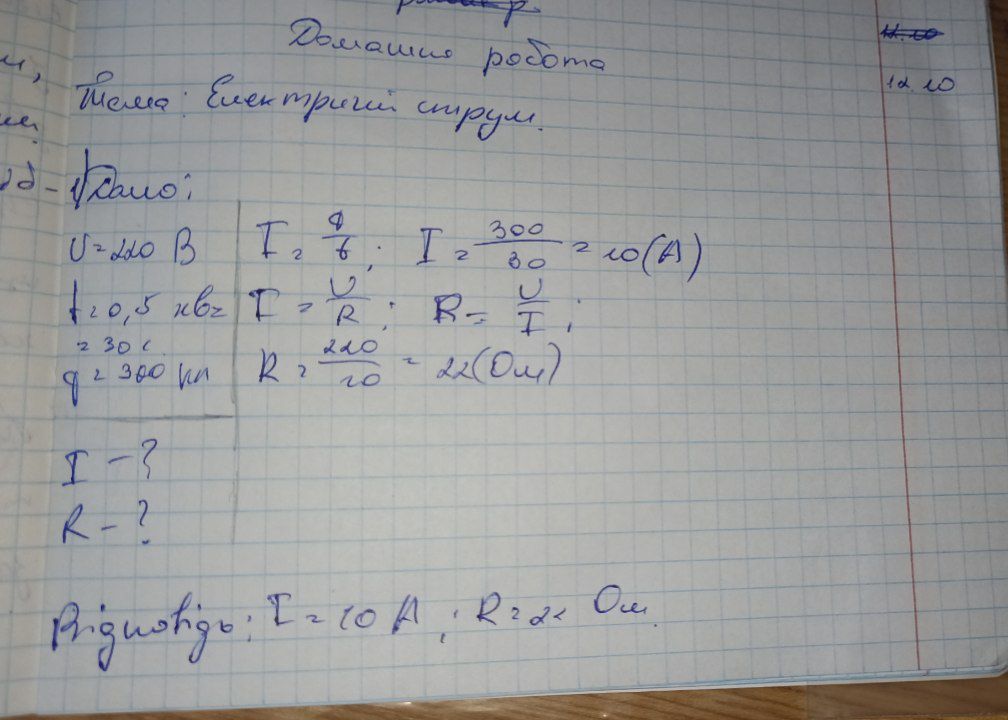 12.10
Домашня робота
Тема: Електричний струм.
Дано:
U = 220 В
t = 0,5 хв =
= 30 с.
q = 300 Кл
I - ?
R - ?
I = q/t; I = 300/30 = 10(А)
I = U/R; R = U/I;
R = 220/10 = 22(Ом)
Відповідь: I = 10 А; R = 22 Ом.